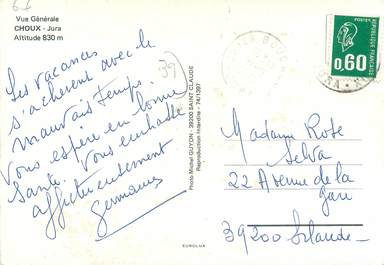 67
Vue Générale
CHOUX - Jura
Altitude 830 m
Les vacances
s'achevent avec le
mauvais temps.
Vous espère en bonne
santé. Vous embrasse
affectueusement
Germaine
39
Photo Michel GUYON - 39200 SAINT CLAUDE
Reproduction Interdite - 74/1397
EUROLUX
POSTES
REPUBLIQUE FRANÇAISE
0,60
JURA
Madame Rose
Selva
22 Avenue de la
gare
39200 St Claude